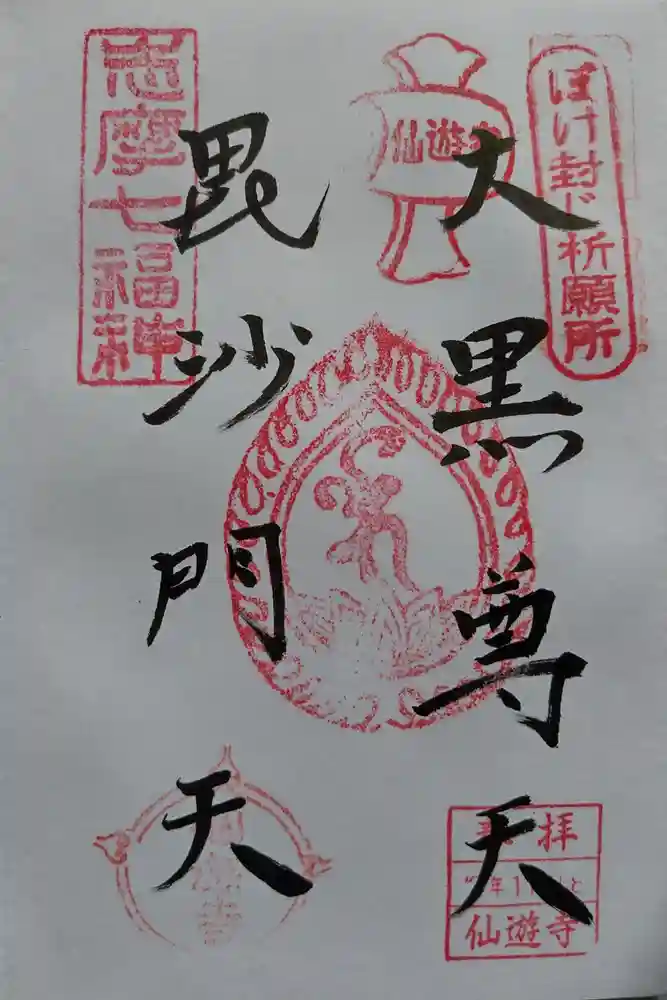 ぼけ封じ祈願所
大黒尊天
仙遊寺
毘沙門天
志摩七福神
拝
仙遊寺